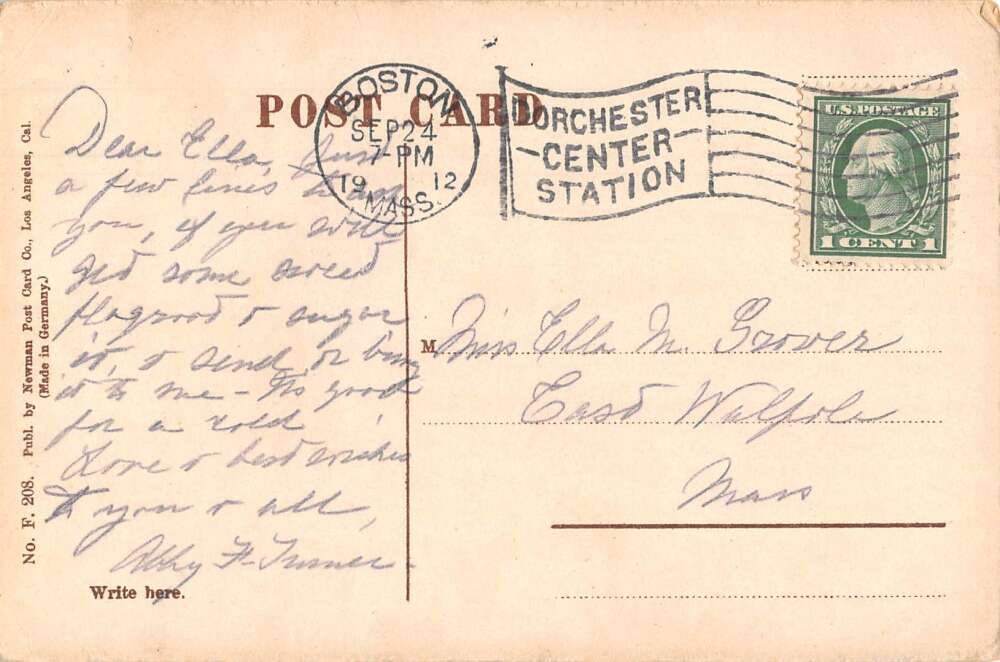 POST CARD
BOSTON
SEP 24
7-PM
1912
MASS.
DORCHESTER
CENTER
STATION
U.S. POSTAGE
1 CENT 1
No. F. 208. Publ. by Newman Post Card Co., Los Angeles, Cal.
(Made in Germany.)
Dear Ella, Just
a few lines to ask
you, if you will
get some sweet
flagroot & sugar
it, & send or bring
it to me - its good
for a cold
Love & best wishes
to you & all,
Abby F. Turner.
Write here.
M Miss Ella M. Grover
East Walpole
Mass